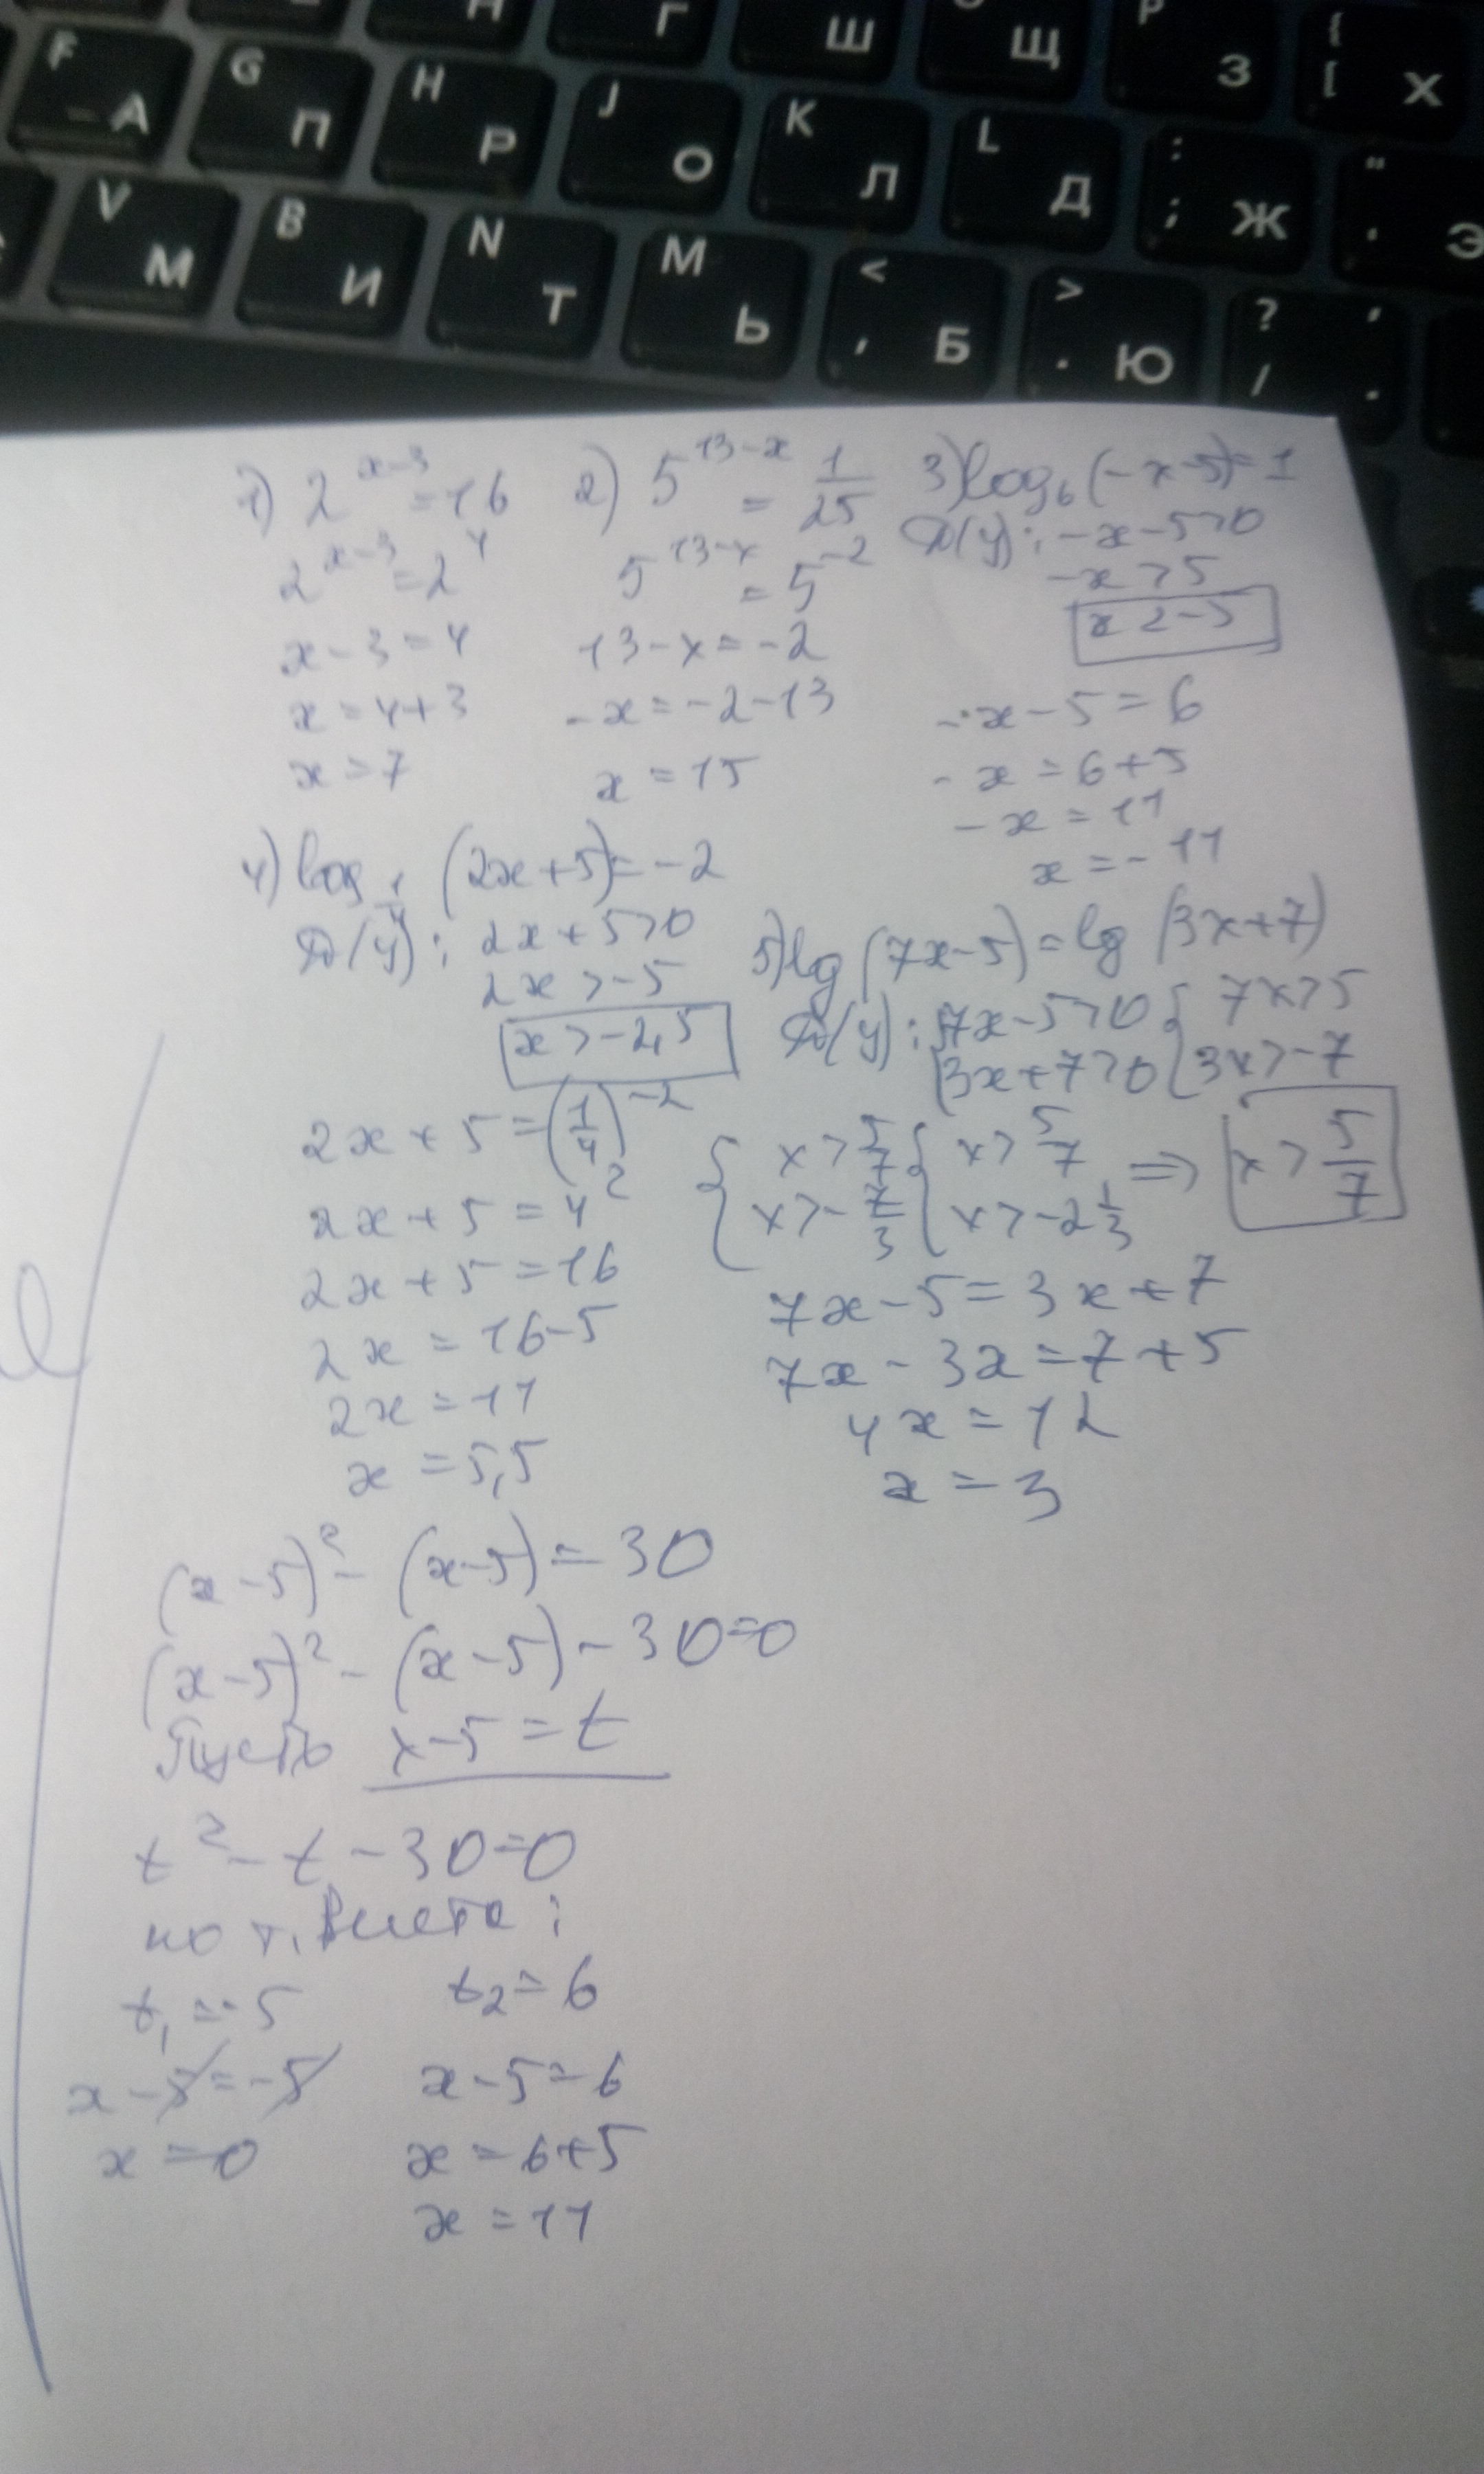 Г Ш Щ P З { [ Х
F А G П H Р J О K Л L Д : ; Ж " Э
V М B И N Т M Ь < , Б > . Ю ? / .
1) 2^{x-3} = 16
2^{x-3} = 2^4
x - 3 = 4
x = 4 + 3
x = 7
2) 5^{13-x} = 1/25
5^{13-x} = 5^{-2}
13 - x = -2
-x = -2 - 13
x = 15
3) log_6 (-x-5) = 1
D(y): -x - 5 > 0
-x > 5
x < -5
-x - 5 = 6
-x = 6 + 5
-x = 11
x = -11
4) log_{1/4} (2x+5) = -2
D(y): 2x + 5 > 0
2x > -5
x > -2,5
2x + 5 = (1/4)^{-2}
2x + 5 = 4^2
2x + 5 = 16
2x = 16 - 5
2x = 11
x = 5,5
5) lg (7x-5) = lg (3x+7)
D(y): { 7x-5>0 { 7x>5
{ 3x+7>0 { 3x>-7
{ x > 5/7 { x > 5/7 => x > 5/7
{ x > -7/3 { x > -2 1/3
7x - 5 = 3x + 7
7x - 3x = 7 + 5
4x = 12
x = 3
(x-5)^2 - (x-5) = 30
(x-5)^2 - (x-5) - 30 = 0
Пусть x-5 = t
t^2 - t - 30 = 0
по т. Виета:
t_1 = -5 t_2 = 6
x - 5 = -5 x - 5 = 6
x = 0 x = 6 + 5
x = 11